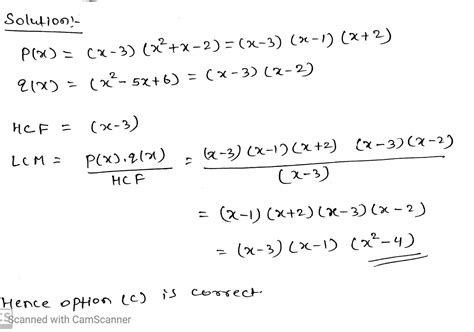 Solution:-
P(x) = (x-3) (x²+x-2) = (x-3) (x-1) (x+2)
q(x) = (x²-5x+6) = (x-3) (x-2)
HCF = (x-3)
LCM = P(x).q(x) / HCF = (x-3) (x-1) (x+2) (x-3) (x-2) / (x-3)
= (x-1) (x+2) (x-3) (x-2)
= (x-3) (x-1) (x²-4)
Hence option (c) is correct
CS Scanned with CamScanner